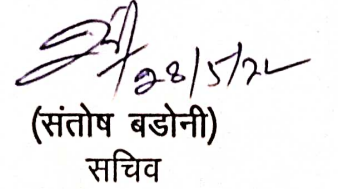 28/5/22
(संतोष बडोनी)
सचिव